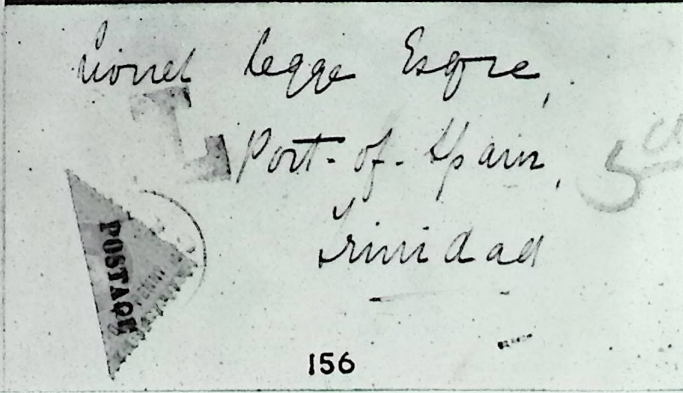 Lionel Legge Esqre,
Port-of-Spain,
Trinidad
POSTAGE
PENNY
156